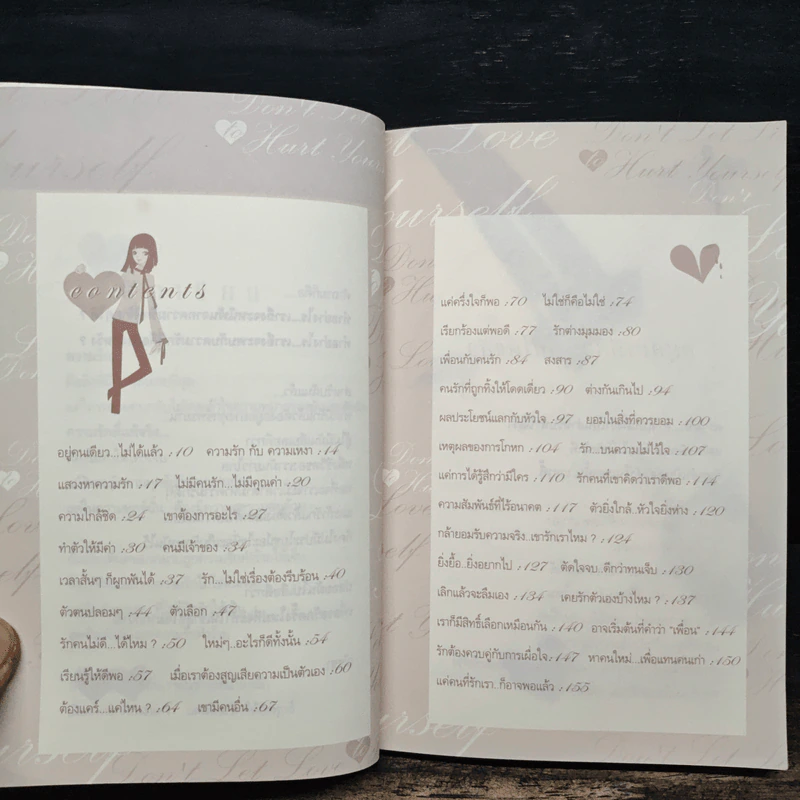 Don't Let Love
Hurt Yourself
contents
อยู่คนเดียว...ไม่ได้แล้ว :10 ความรัก กับ ความเหงา :14
แสวงหาความรัก :17 ไม่มีคนรัก...ไม่มีคุณค่า :20
ความใกล้ชิด :24 เขาต้องการอะไร :27
ทำตัวให้มีค่า :30 คนมีเจ้าของ :34
เวลาสั้นๆ ก็ผูกพันได้ :37 รัก...ไม่ใช่เรื่องต้องรีบร้อน :40
ตัวตนปลอมๆ :44 ตัวเลือก :47
รักคนไม่ดี...ได้ไหม ? :50 ใหม่ๆ..อะไรก็ดีทั้งนั้น :54
เรียนรู้ให้ดีพอ :57 เมื่อเราต้องสูญเสียความเป็นตัวเอง :60
ต้องแคร์...แค่ไหน ? :64 เขามีคนอื่น :67
Don't Let Love
Hurt Yourself
แค่ครึ่งใจก็พอ :70 ไม่ใช่ก็คือไม่ใช่ :74
เรียกร้องแต่พอดี :77 รักต่างมุมมอง :80
เพื่อนกับคนรัก :84 สงสาร :87
คนรักที่ถูกทิ้งให้โดดเดี่ยว :90 ต่างกันเกินไป :94
ผลประโยชน์แลกกับหัวใจ :97 ยอมในสิ่งที่ควรยอม :100
เหตุผลของการโกหก :104 รัก...บนความไม่ไว้ใจ :107
แค่การได้รู้สึกว่ามีใคร :110 รักคนที่เขาคิดว่าเราดีพอ :114
ความสัมพันธ์ที่ไร้อนาคต :117 ตัวยิ่งใกล้..หัวใจยิ่งห่าง :120
กล้ายอมรับความจริง..เขารักเราไหม ? :124
ยิ่งยื้อ..ยิ่งอยากไป :127 ตัดใจจบ..ดีกว่าทนเจ็บ :130
เลิกแล้วจะลืมเอง :134 เคยรักตัวเองบ้างไหม ? :137
เราก็มีสิทธิ์เลือกเหมือนกัน :140 อาจเริ่มต้นที่คำว่า "เพื่อน" :144
รักต้องควบคู่กับการเผื่อใจ :147 หาคนใหม่...เพื่อแทนคนเก่า :150
แค่คนที่รักเรา..ก็อาจพอแล้ว :155
Don't Let Love